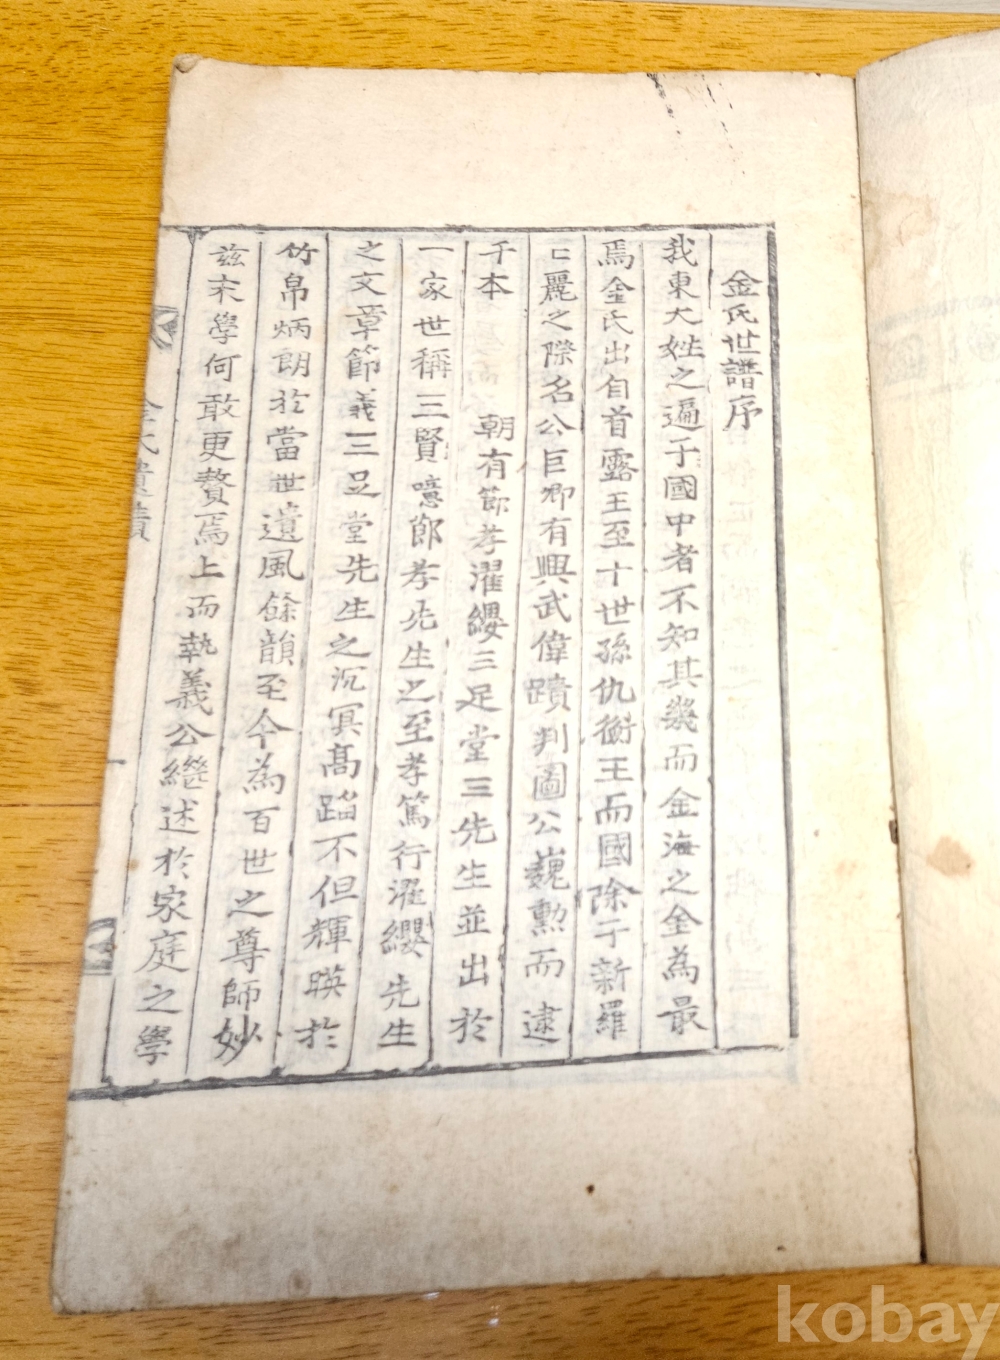 金氏世譜序
我東大姓之遍于國中者不知其幾而金海之金為最
焉金氏出自首露王至十世孫仇衝王而國除于新羅
麗之際名公巨卿有興武偉蹟判圖公巍勳而逮
于本
朝有節孝濯纓三足堂三先生並出於
一家世稱三賢噫節孝先生之至孝篤行濯纓先生
之文章節義三足堂先生之沉冥高蹈不但輝暎於
竹帛炳朗於當世遺風餘韻至今為百世之尊師妙
茲末學何敢更贅焉上而執義公繼述於家庭之學
金氏
一
kobay